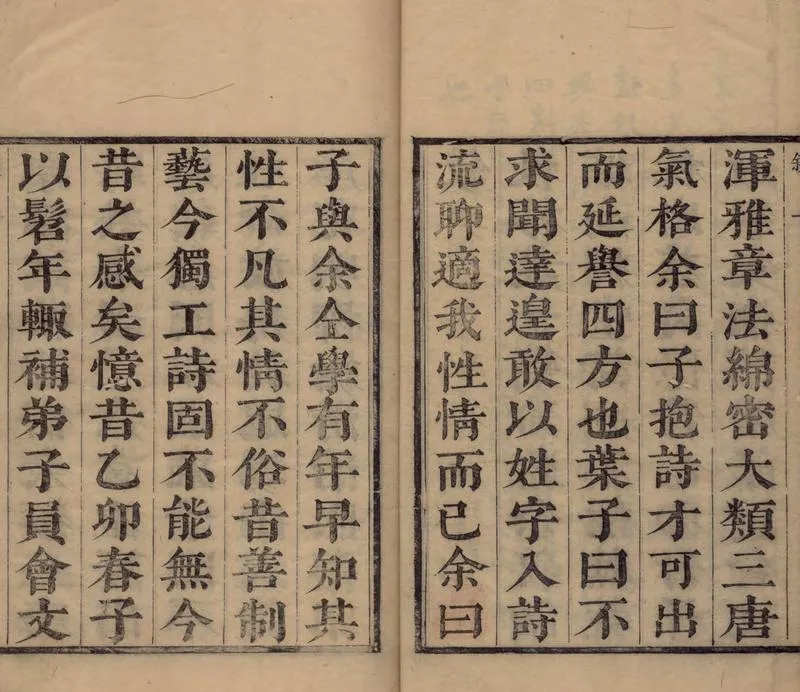 渾雅章法綿密大類三唐
氣格余曰子抱詩才可出
而延譽四方也葉子曰不
求聞達遑敢以姓字入詩
流聊適我性情而已余曰
子與余仝學有年早知其
性不凡其情不俗昔善制
藝今獨工詩固不能無今
昔之感矣憶昔乙卯春子
以髫年輙補弟子員會文